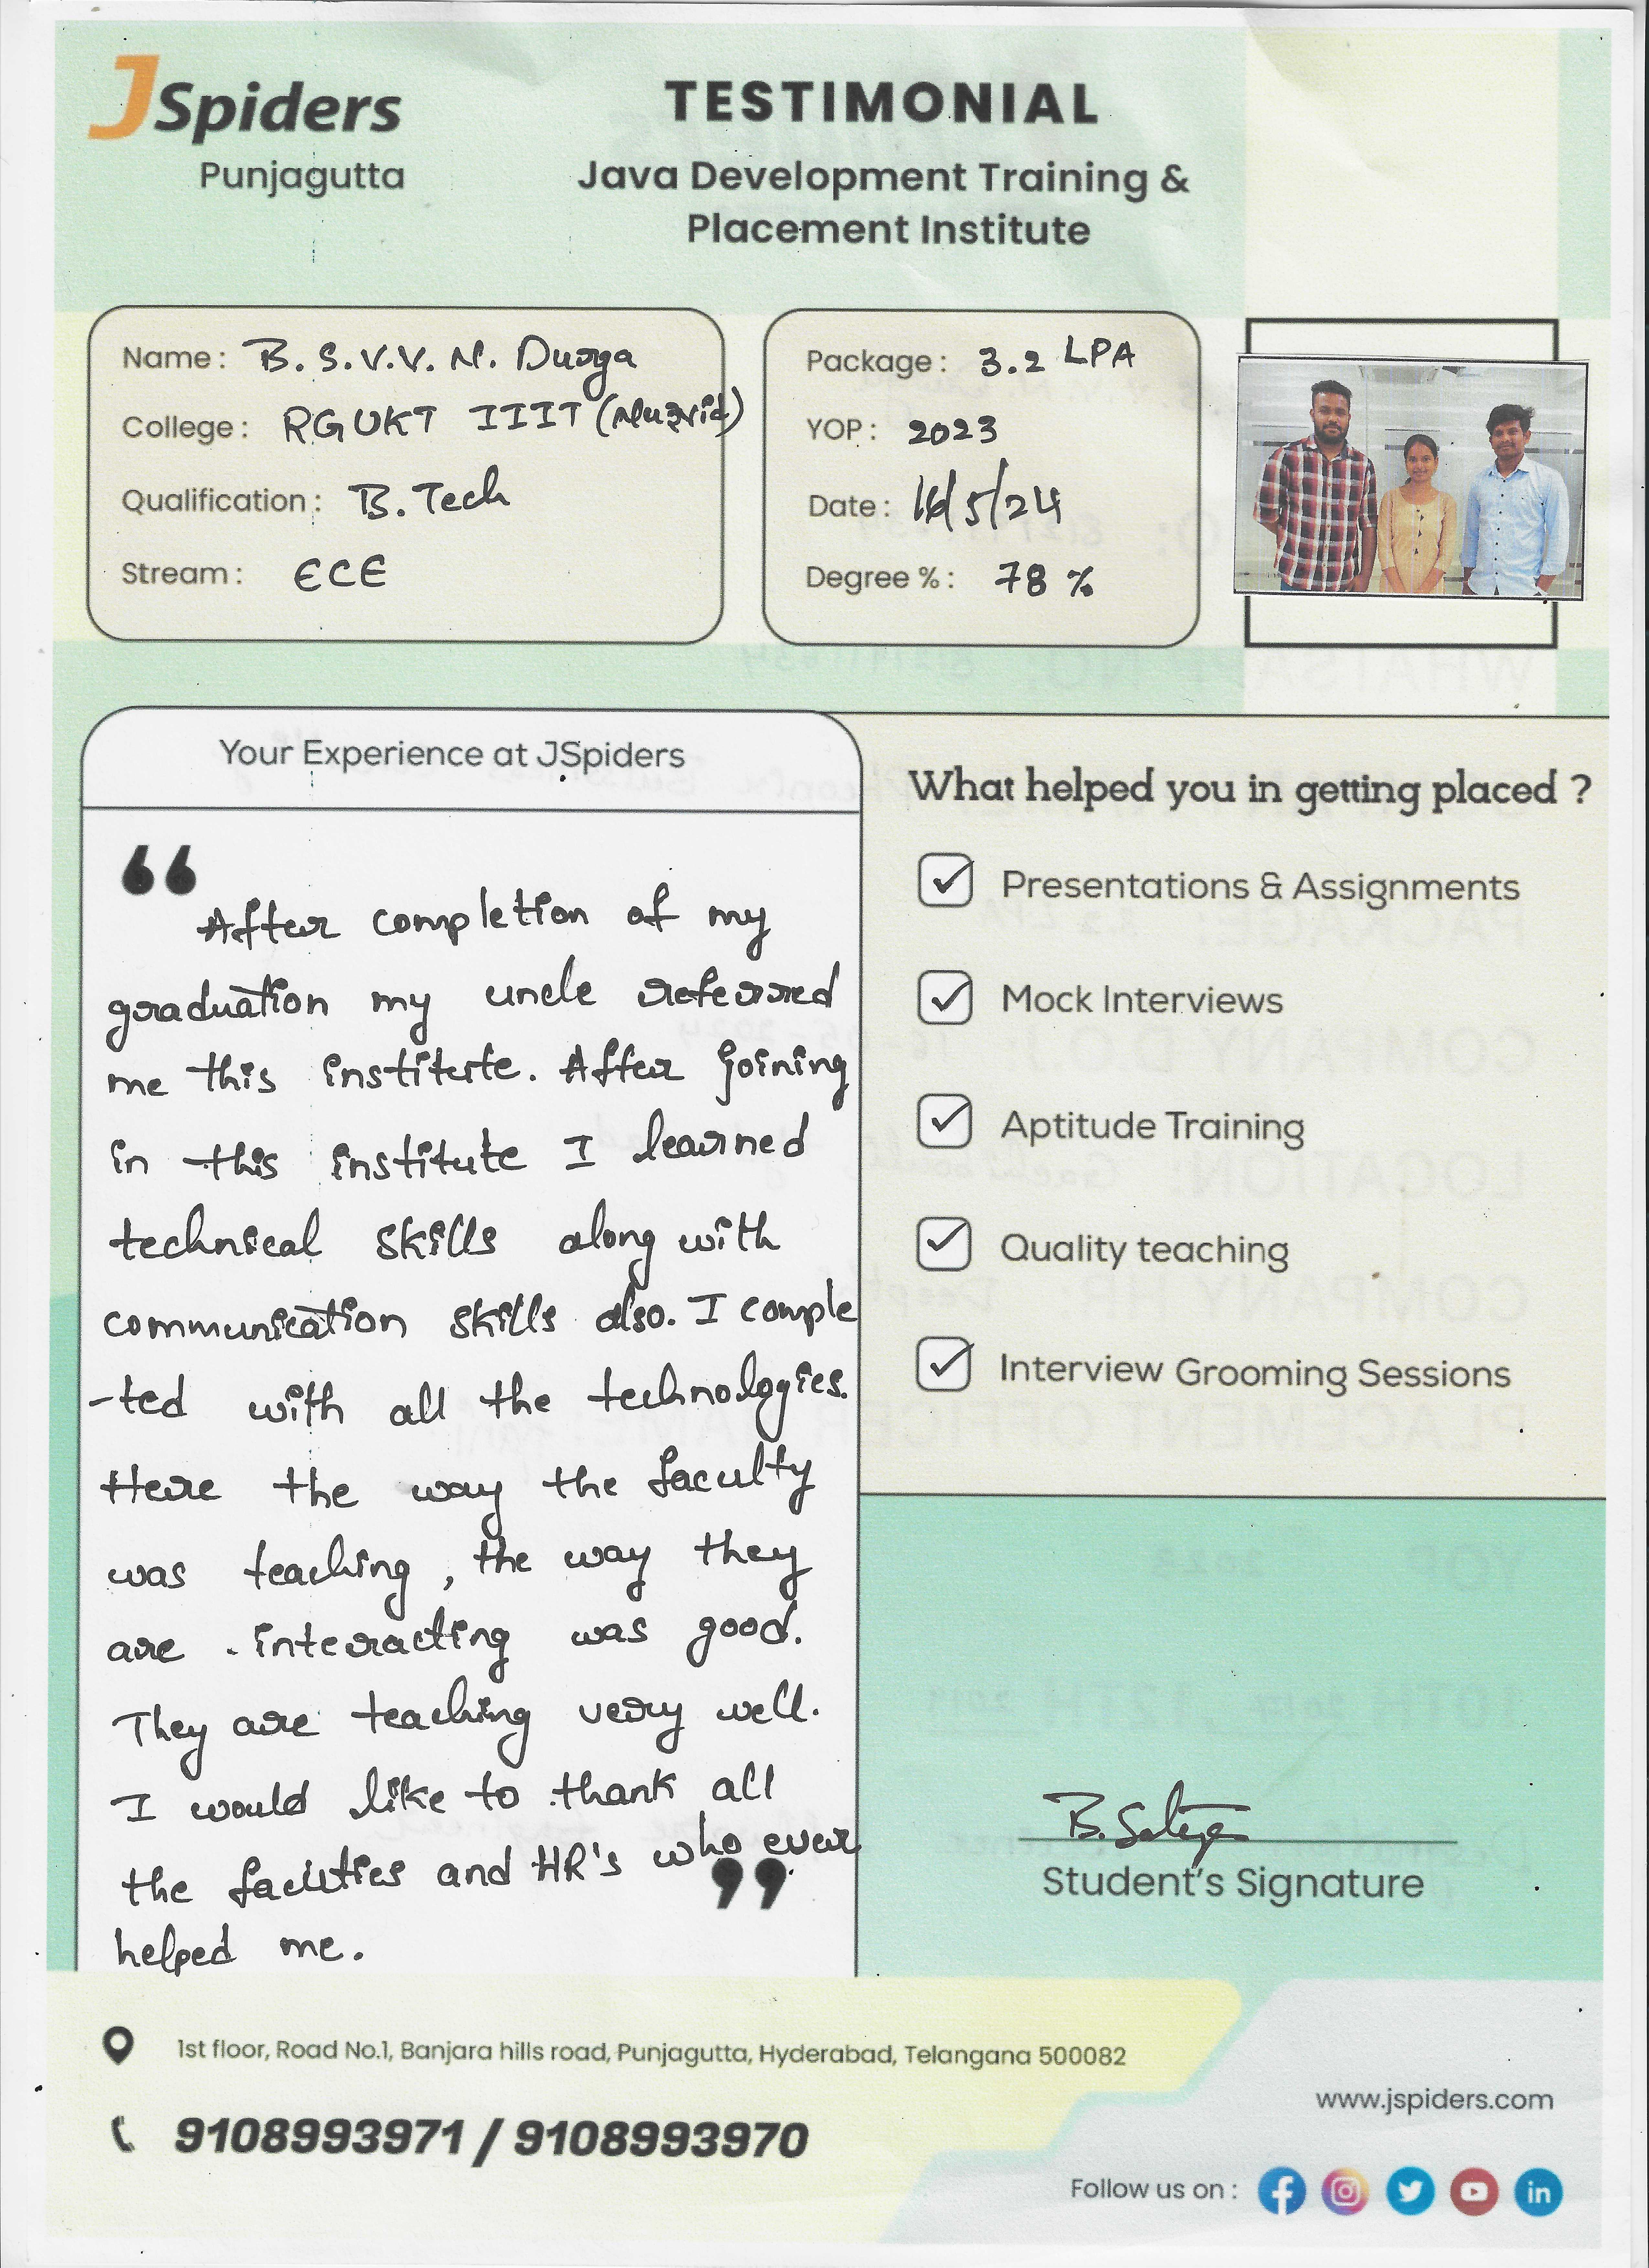 JSpiders
Punjagutta
TESTIMONIAL
Java Development Training &
Placement Institute
Name : B. S. V. V. N. Durga
College : RGUKT IIIT (Nuzvid)
Qualification : B. Tech
Stream : ECE
Package : 3.2 LPA
YOP : 2023
Date : 16/5/24
Degree % : 78 %
Your Experience at JSpiders
“
After completion of my
graduation my uncle referred
me this institute. After joining
in this institute I learned
technical skills along with
communication skills also. I comple
-ted with all the technologies.
Here the way the faculty
was teaching, the way they
are interacting was good.
They are teaching very well.
I would like to thank all
the faculties and HR's who ever
helped me.
”
What helped you in getting placed ?
Presentations & Assignments
Mock Interviews
Aptitude Training
Quality teaching
Interview Grooming Sessions
Student's Signature
1st floor, Road No.1, Banjara hills road, Punjagutta, Hyderabad, Telangana 500082
9108993971 / 9108993970
www.jspiders.com
Follow us on :